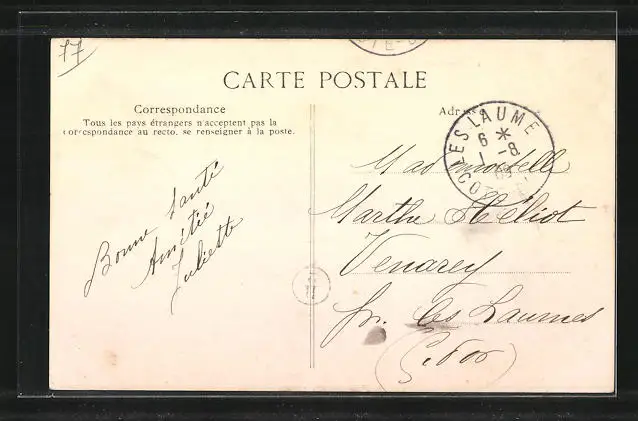 77
CARTE POSTALE
Correspondance
Tous les pays étrangers n'acceptent pas la
correspondance au recto, se renseigner à la poste.
Adresse
LES LAUMES
6 *
1 -8
COTE
Bonne Santé
Amitié
Juliette
Mademoiselle
Marthe Héliot
Venarey
pr. les Laumes
(C. d'or)